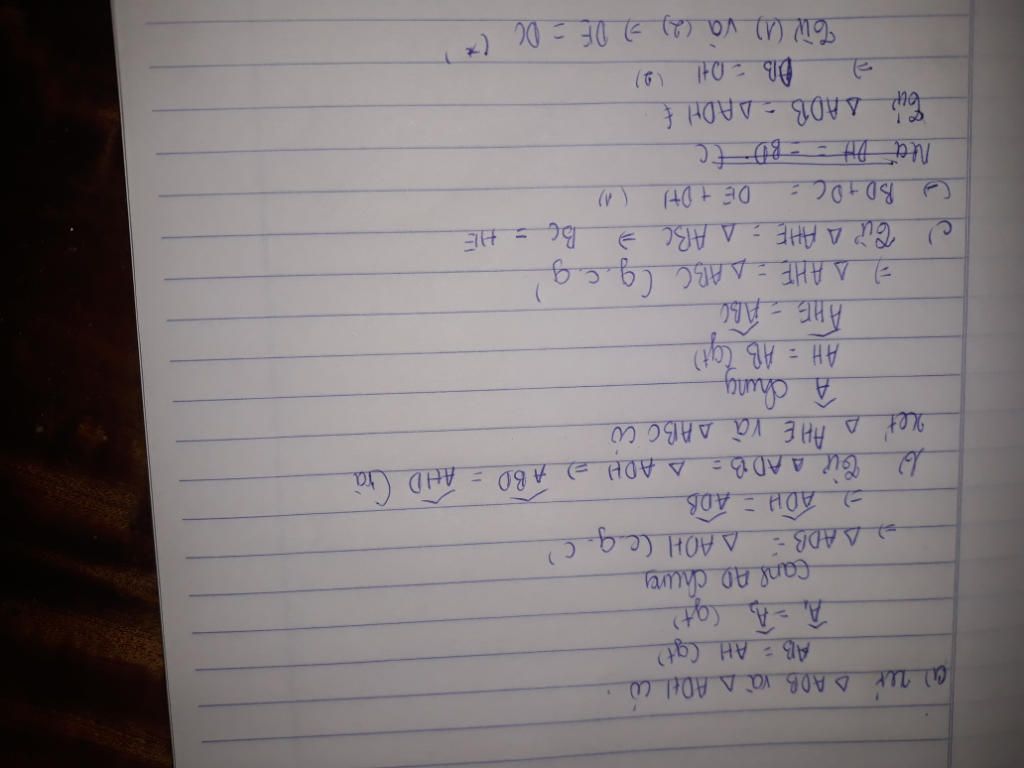 a) xét Δ ADB và Δ ADH có
AB = AH (gt)
Â₁ = Â₂ (gt)
Cạnh AD chung
⇒ Δ ADB = Δ ADH (c.g.c)
⇒ ADH = ADB
b) Từ Δ ADB = Δ ADH ⇒ ABD = AHD
xét Δ AHE và Δ ABC có
Â chung
AH = AB (gt)
AHE = ABC
⇒ Δ AHE = Δ ABC (g.c.g)
c) Từ Δ AHE = Δ ABC ⇒ BC = HE
BD + DC = DE + DH (1)
Mà DH = BD
Từ Δ ADB = Δ ADH
⇒ DB = DH (2)
Từ (1) và (2) ⇒ DE = DC (*)